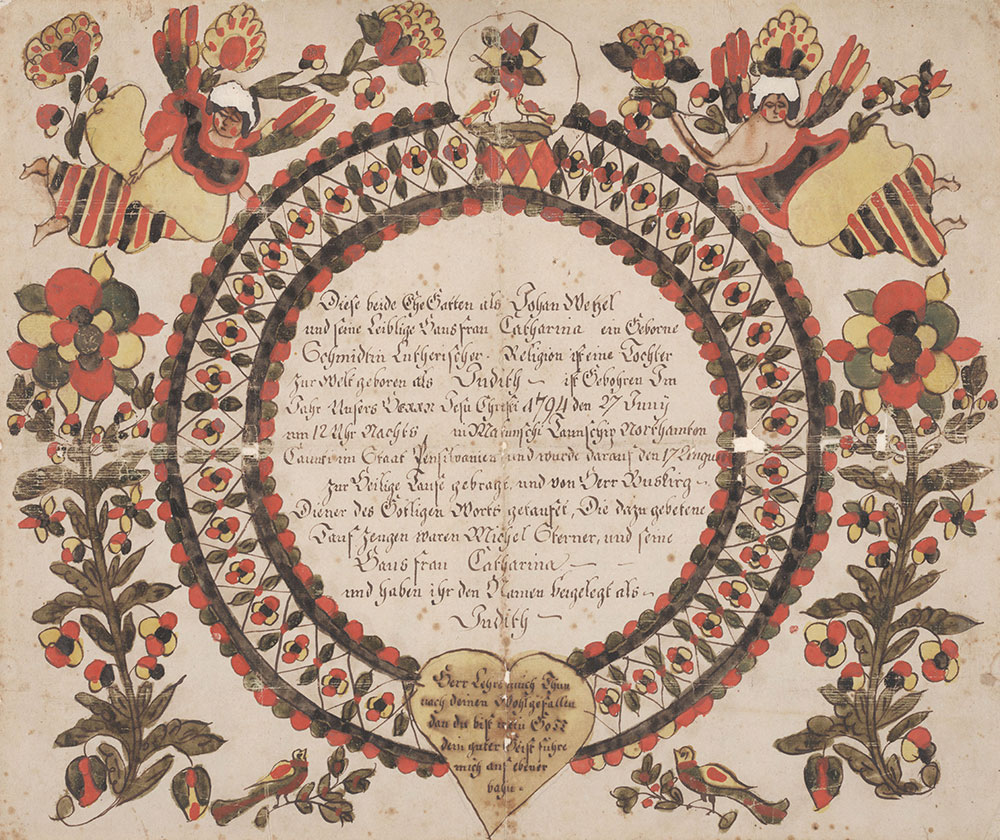 Diese beide Ehe Gatten als Johan Wetzel
und seine Leiblige Hausfrau Catharina ein Geborne
Schmidtin Lutherischer Religion ist eine Tochter
zur Welt geboren als Judith ist Gebohren Im
Jahr Unsers Herrn Jesu Christi 1794 den 27 Juny
um 12 Uhr Nachts in Macunschi Taunschip Northamton
Caunti im Staat Pensilvanien und wurde darauf den 17
zur Heilige Taufe gebragt, und von Herr Buskirg
Diener des Götligen Worts getaufet, Die dazu gebetene
Tauf Zeugen waren Michel Sterner, und seine
Hausfrau Catharina
und haben ihr den Namen beygelegt als
Judith
Herr Lehre mich Thun
nach deinen Wohlgefallen
dan du bist mein Gott
dein guter Geist führe
mich auf ebener
bahn.